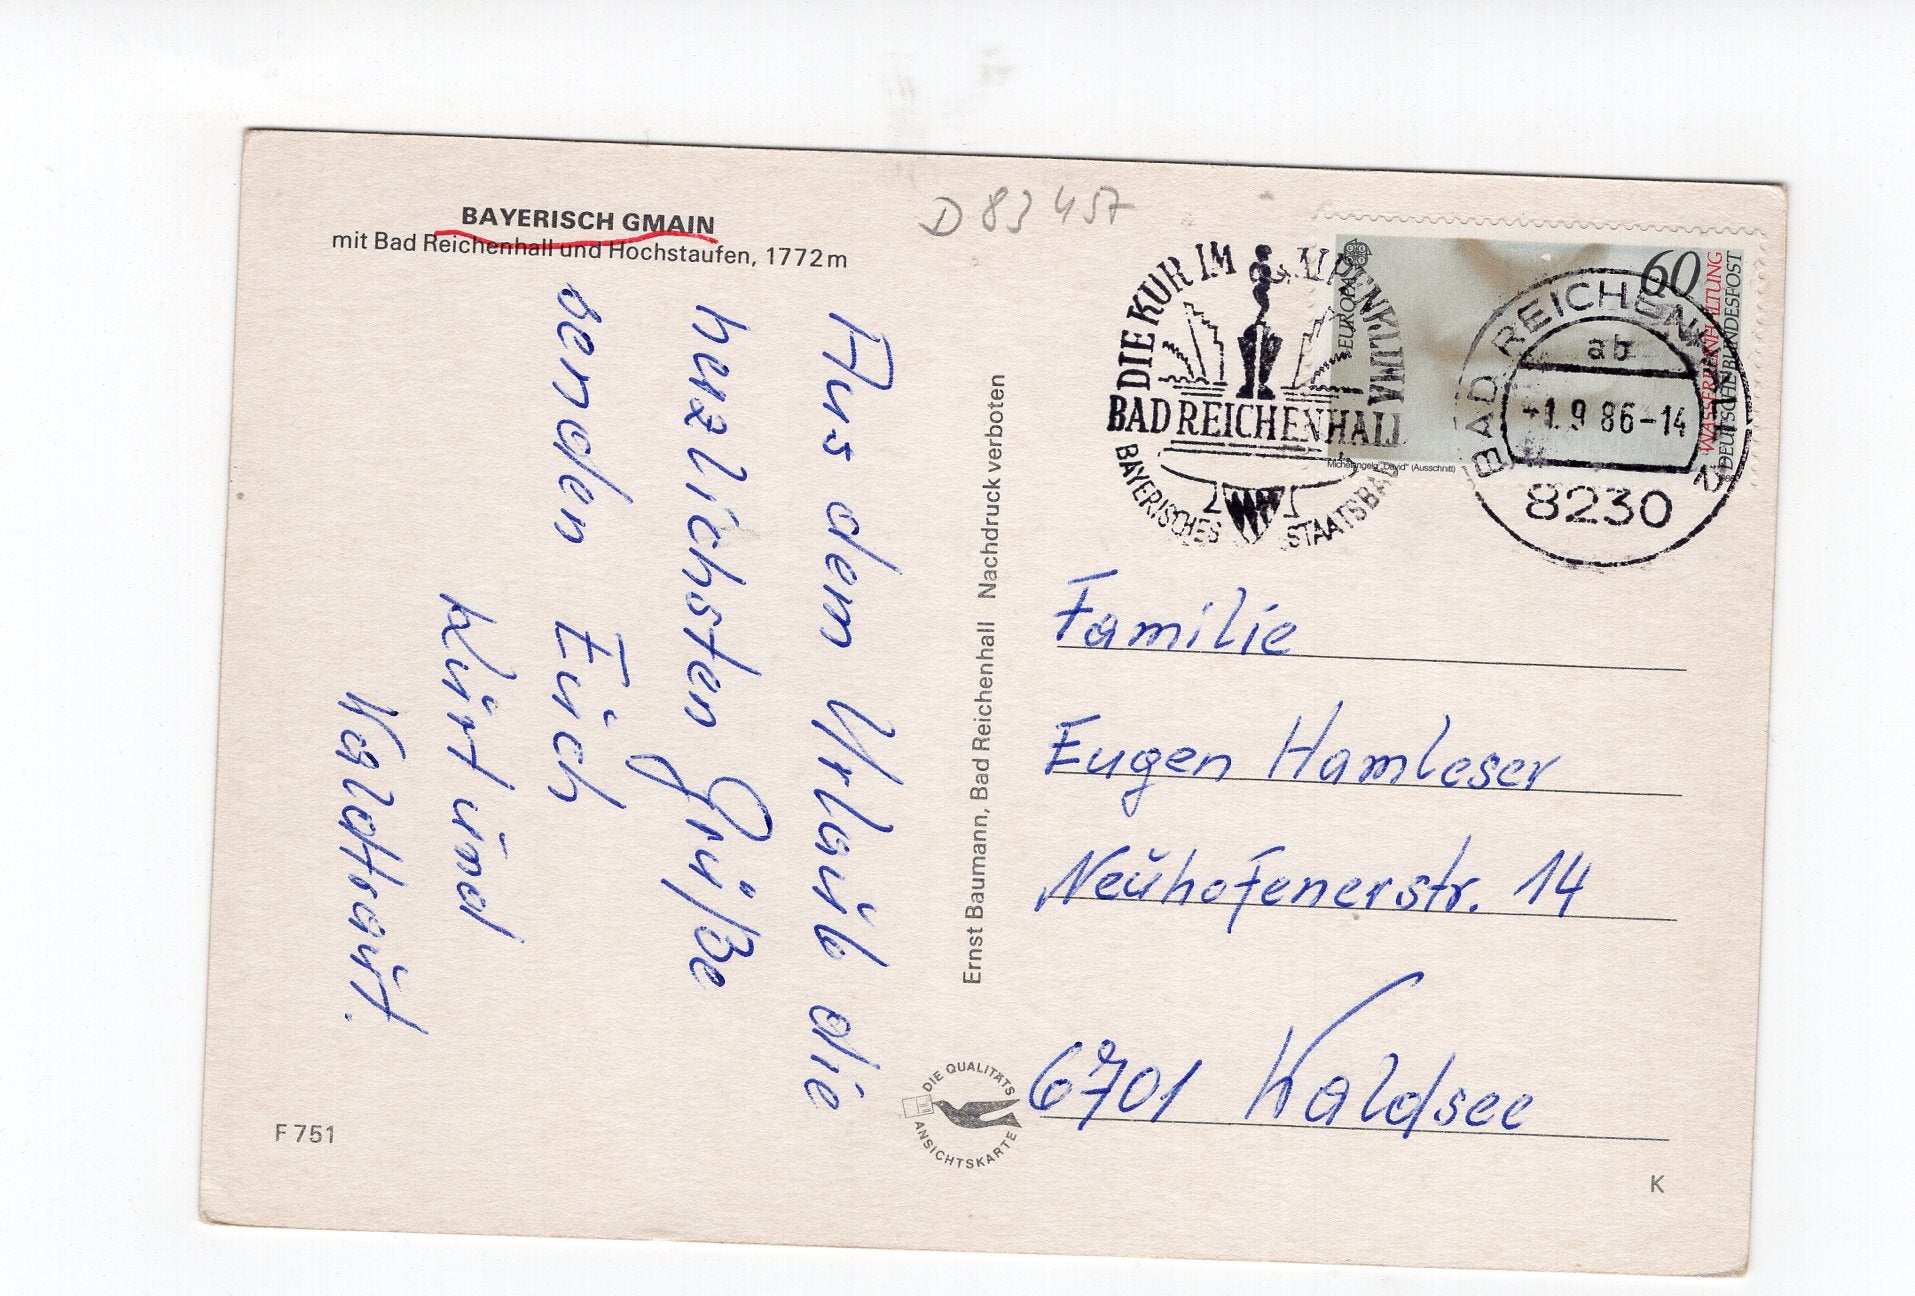 BAYERISCH GMAIN
mit Bad Reichenhall und Hochstaufen, 1772 m
D 83457
Aus dem Urlaub die
herzlichsten Grüße
senden Euch
Kurt und
Waldtraut.
F 751
Ernst Baumann, Bad Reichenhall Nachdruck verboten
DIE QUALITÄTS
ANSICHTSKARTE
DIE KUR IM ALPENKLIMA
BAD REICHENHALL
BAYERISCHES STAATSBAD
EUROPA
60
WASSERREINHALTUNG
DEUTSCHE BUNDESPOST
Michelangelo „David“ (Ausschnitt)
BAD REICHENHALL 2
ab
-1.9.86-14
8230
Familie
Eugen Hamleser
Neuhofenerstr. 14
6701 Waldsee
K